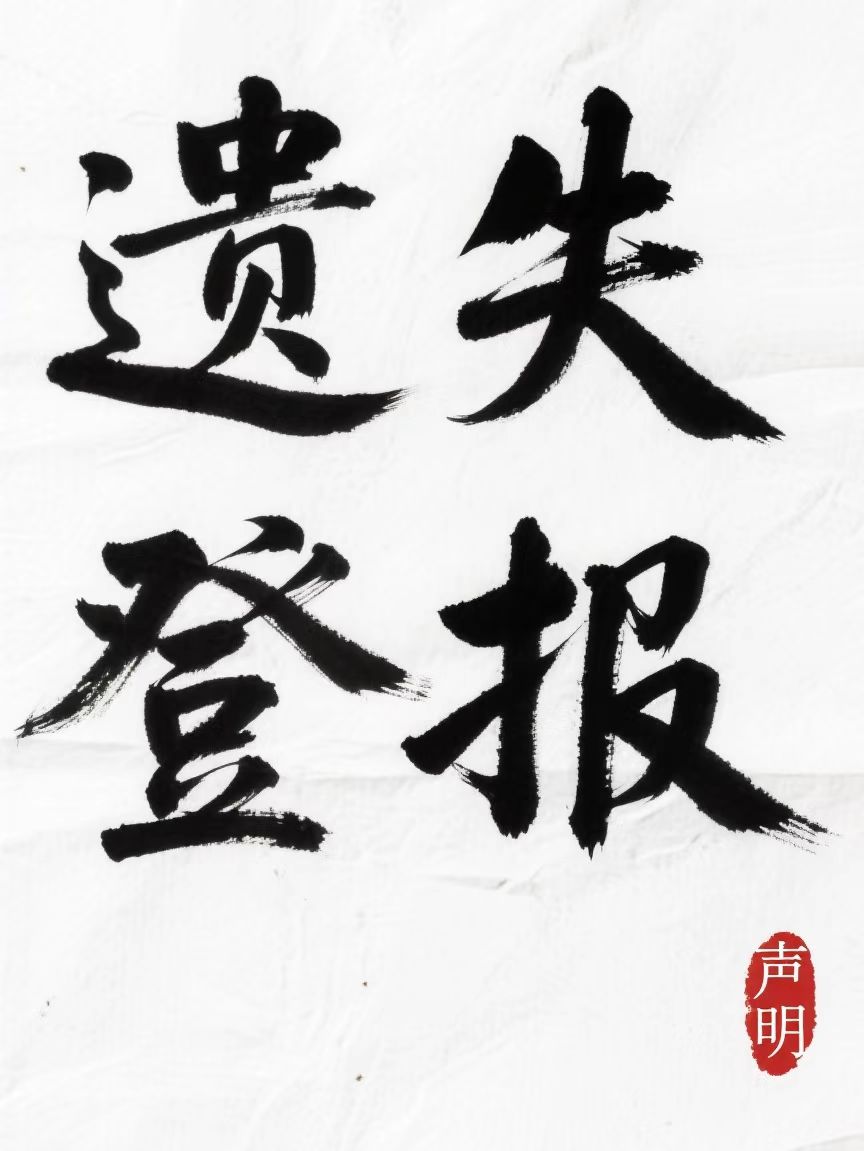 遗失
登报
声明